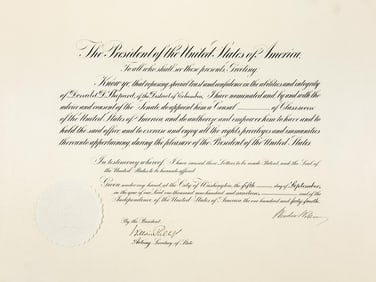 The President of the United States of America.
To all who shall see these presents, Greeting:
Know ye, that reposing special trust and confidence in the abilities and integrity
of Donald D. Shepard, of the District of Columbia, I have nominated and by and with the
advice and consent of the Senate do appoint him a Consul of Class seven
of the United States of America and do authorize and empower him to have and to
hold the said office and to exercise and enjoy all the rights privileges and immunities
thereunto appertaining during the pleasure of the President of the United States.
In testimony whereof, I have caused these Letters to be made Patent and the Seal of
the United States to be hereunto affixed.
Given under my hand, at the City of Washington, the fifth day of September,
in the year of our Lord one thousand nine hundred and nineteen, and of the
Independence of the United States of America the one hundred and forty-fourth.
Woodrow Wilson
By the President:
Acting Secretary of State.